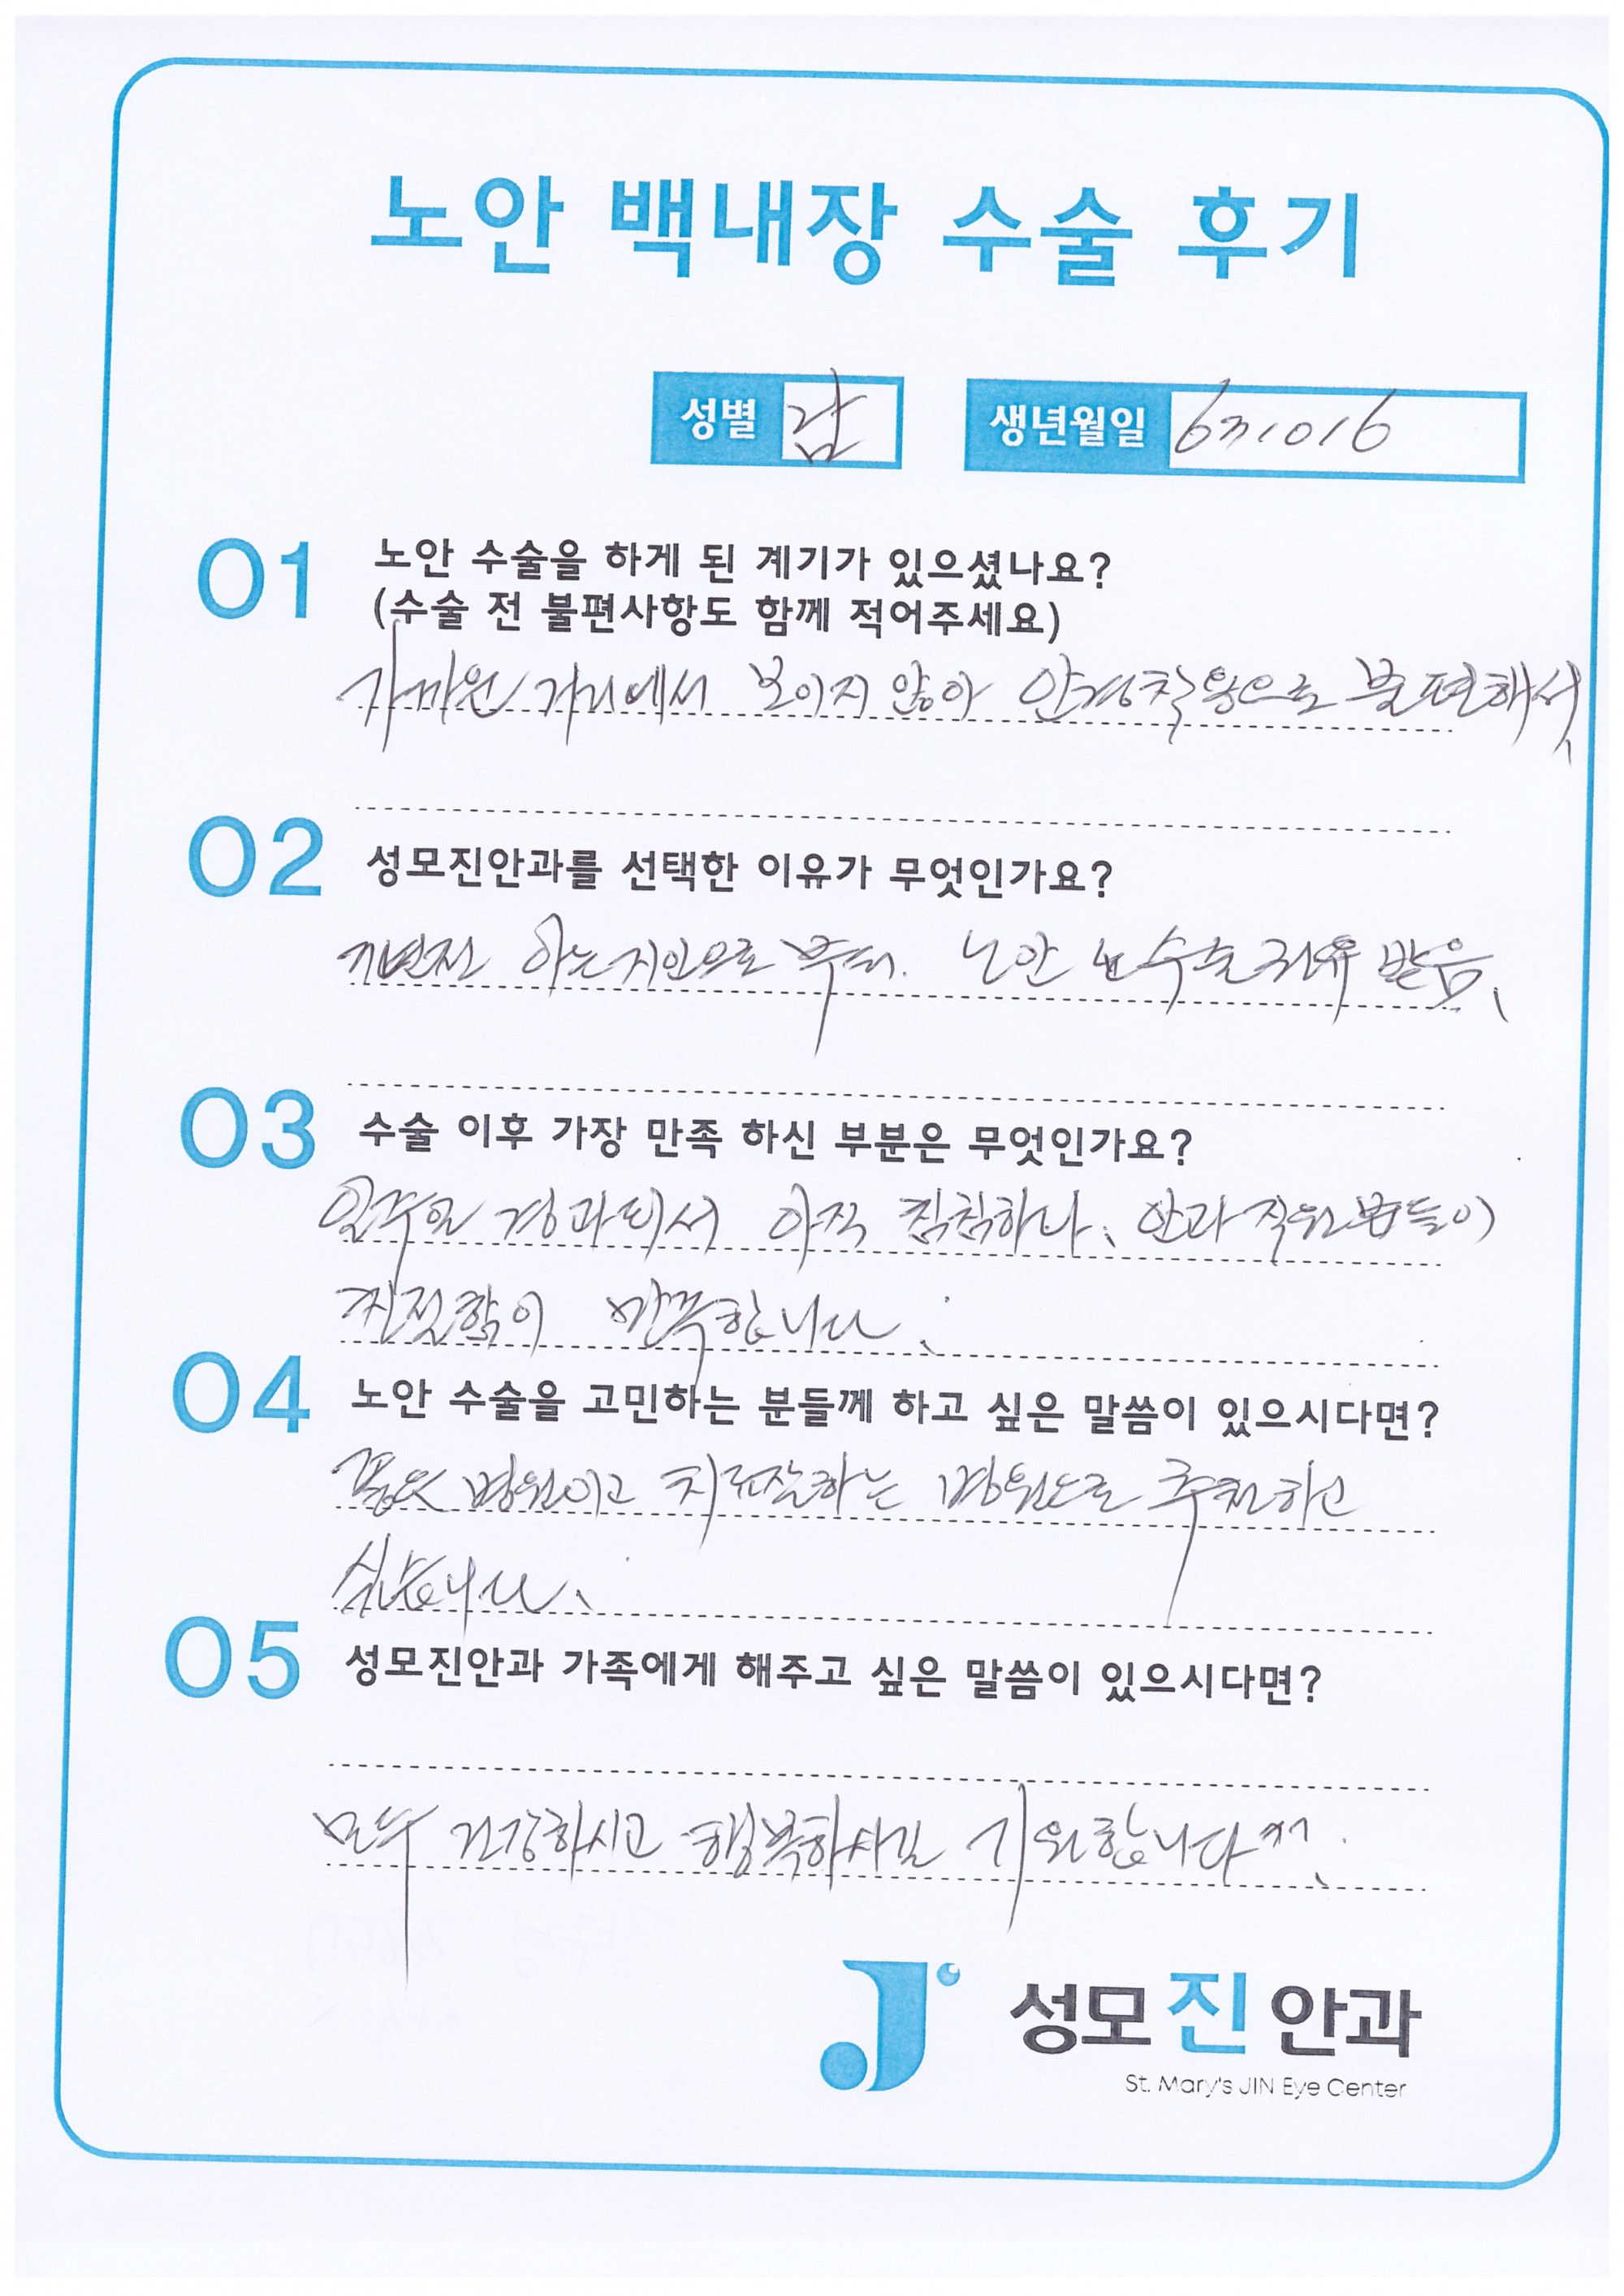 노안 백내장 수술 후기
성별 남 생년월일 631016
01 노안 수술을 하게 된 계기가 있으셨나요?
(수술 전 불편사항도 함께 적어주세요)
가까운 거리에서 보이지 않아 안경착용으로 불편해서,
02 성모진안과를 선택한 이유가 무엇인가요?
아는지인으로 부터. 노안 수술 권유 받음.
03 수술 이후 가장 만족 하신 부분은 무엇인가요?
일주일 경과되서 아직 침침하나. 안과 직원분들이
친절함이 만족합니다.
04 노안 수술을 고민하는 분들께 하고 싶은 말씀이 있으시다면?
병원이고 치료잘하는 병원으로 추천하고
싶습니다.
05 성모진안과 가족에게 해주고 싶은 말씀이 있으시다면?
모두 건강하시고 행복하시길 기원합니다
성모진안과
St. Mary's JIN Eye Center